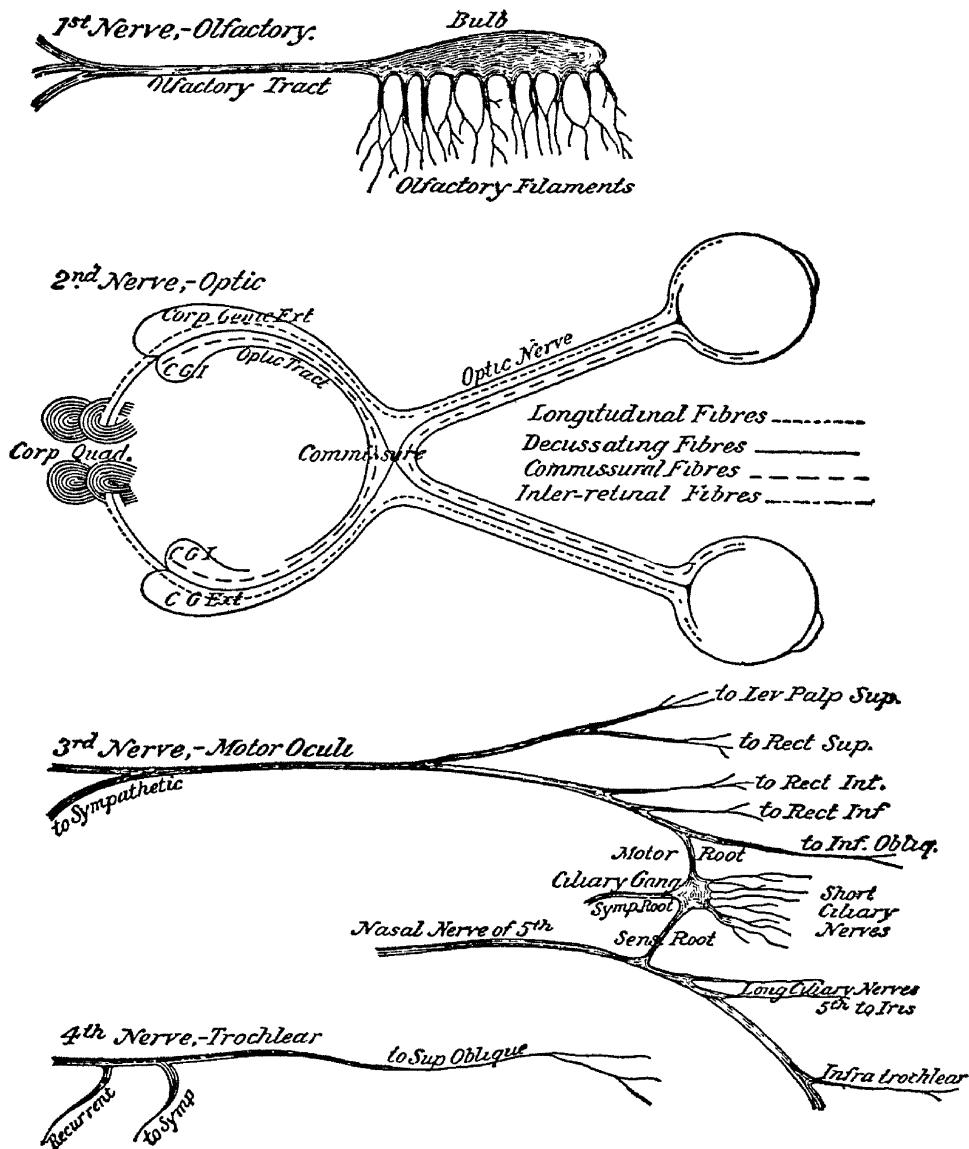 1st Nerve,-Olfactory.
Bulb
Olfactory Tract
Olfactory Filaments
2nd Nerve,-Optic
Corp Genic Ext
C G I
Optic Tract
Optic Nerve
Corp Quad.
Commissure
Longitudinal Fibres
Decussating Fibres
Commissural Fibres
Inter-retinal Fibres
C G I
C G Ext
3rd Nerve,-Motor Oculi
to Sympathetic
to Lev Palp Sup.
to Rect Sup.
to Rect Int.
to Rect Inf
to Inf. Obliq.
Motor Root
Ciliary Gang
Symp Root
Short
Ciliary
Nerves
Nasal Nerve of 5th
Sens. Root
Long Ciliary Nerves
5th to Iris
4th Nerve,-Trochlear
to Sup Oblique
Infra trochlear
Recurrent
to Symp